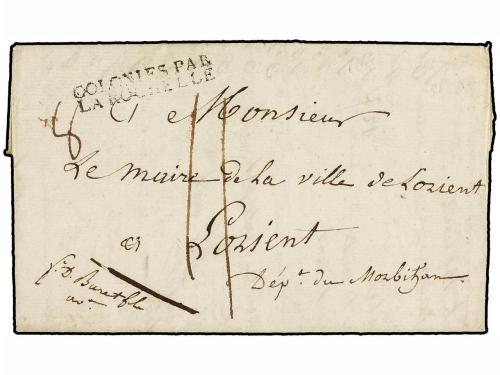 COLONIES PAR
LA ROCHELLE
A Monsieur
Le maire de la ville de Lorient
à Lorient
Dép.t du Morbihan